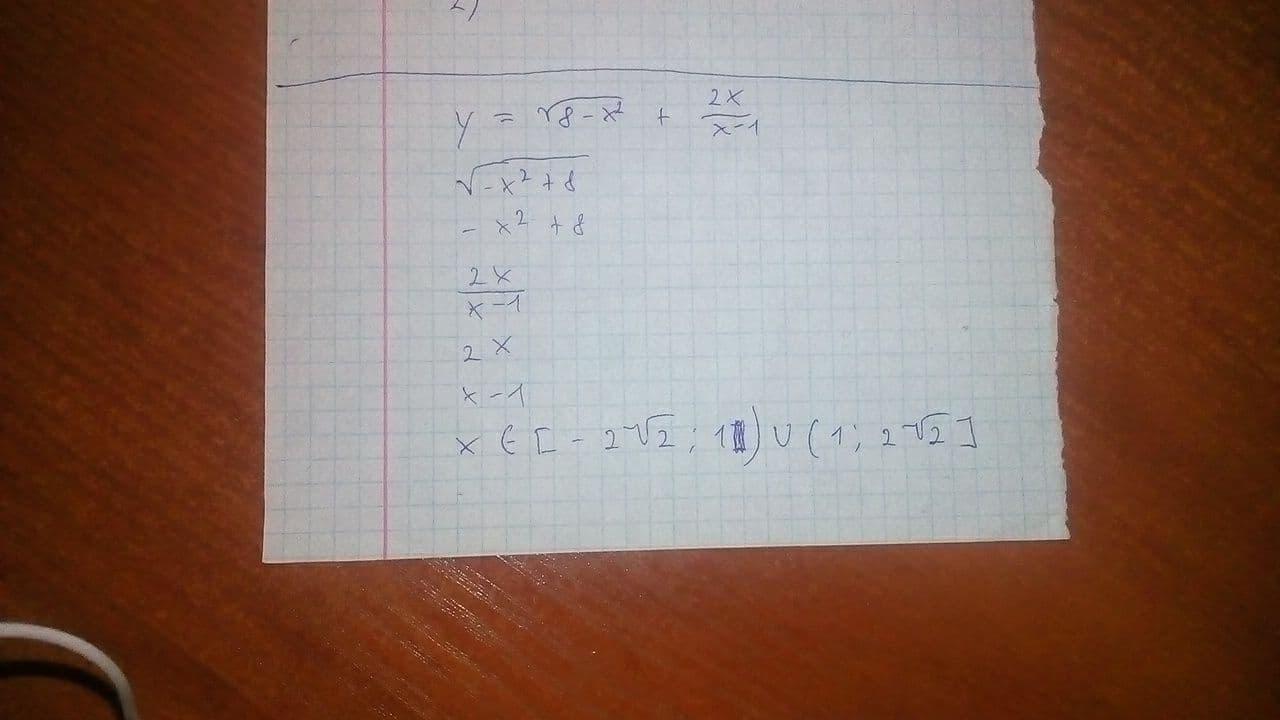 2)
y = √8-x² + 2x/x-1
√-x²+8
-x²+8
2x/x-1
2x
x-1
x ∈ [-2√2; 1) ∪ (1; 2√2]